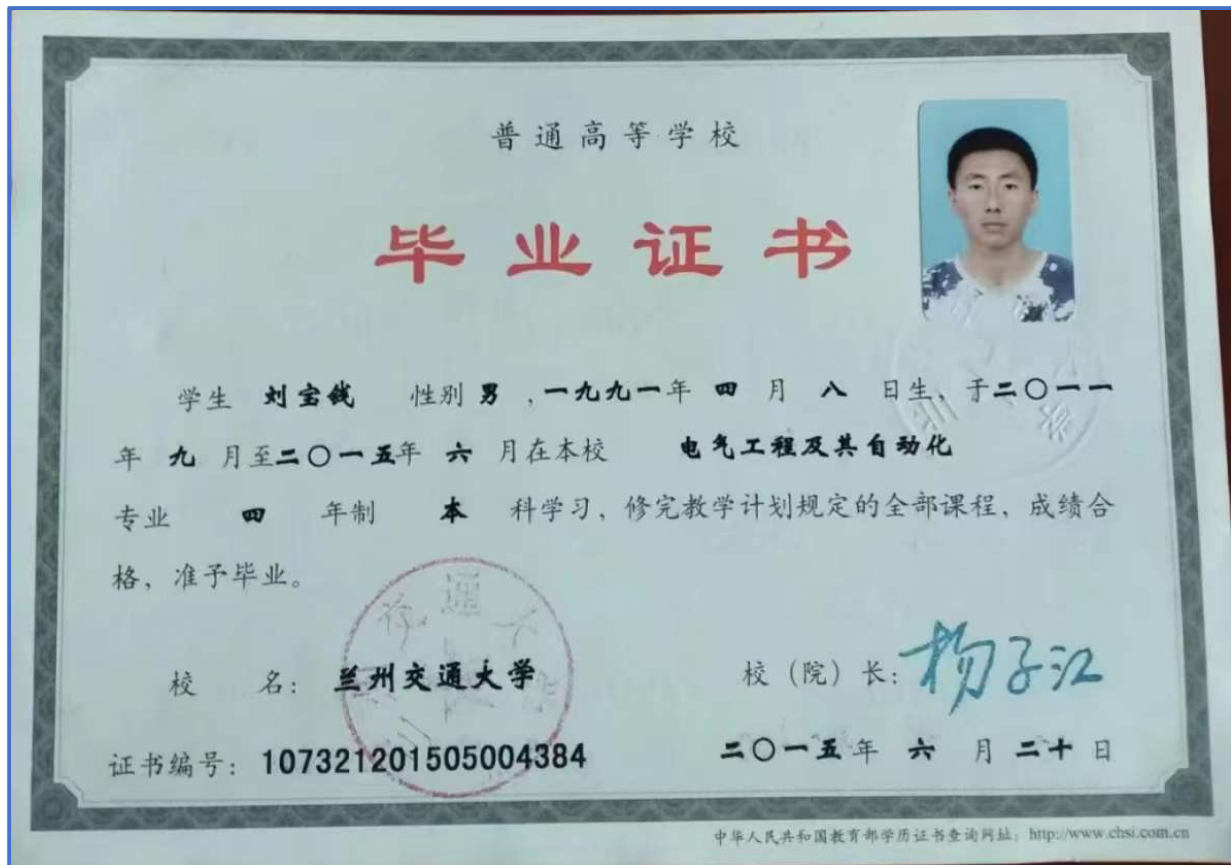 普通高等学校
毕业证书
学生 刘宝钱 性别 男 ,一九九一年 四 月 八 日生、于二〇一一
年 九 月至二〇一五年 六 月在本校 电气工程及其自动化
专业 四 年制 本 科学习，修完教学计划规定的全部课程，成绩合
格，准予毕业。
校 名：兰州交通大学
校（院）长：杨子江
证书编号：107321201505004384
二〇一五年 六 月 二十日
中华人民共和国教育部学历证书查询网址：http://www.chsi.com.cn